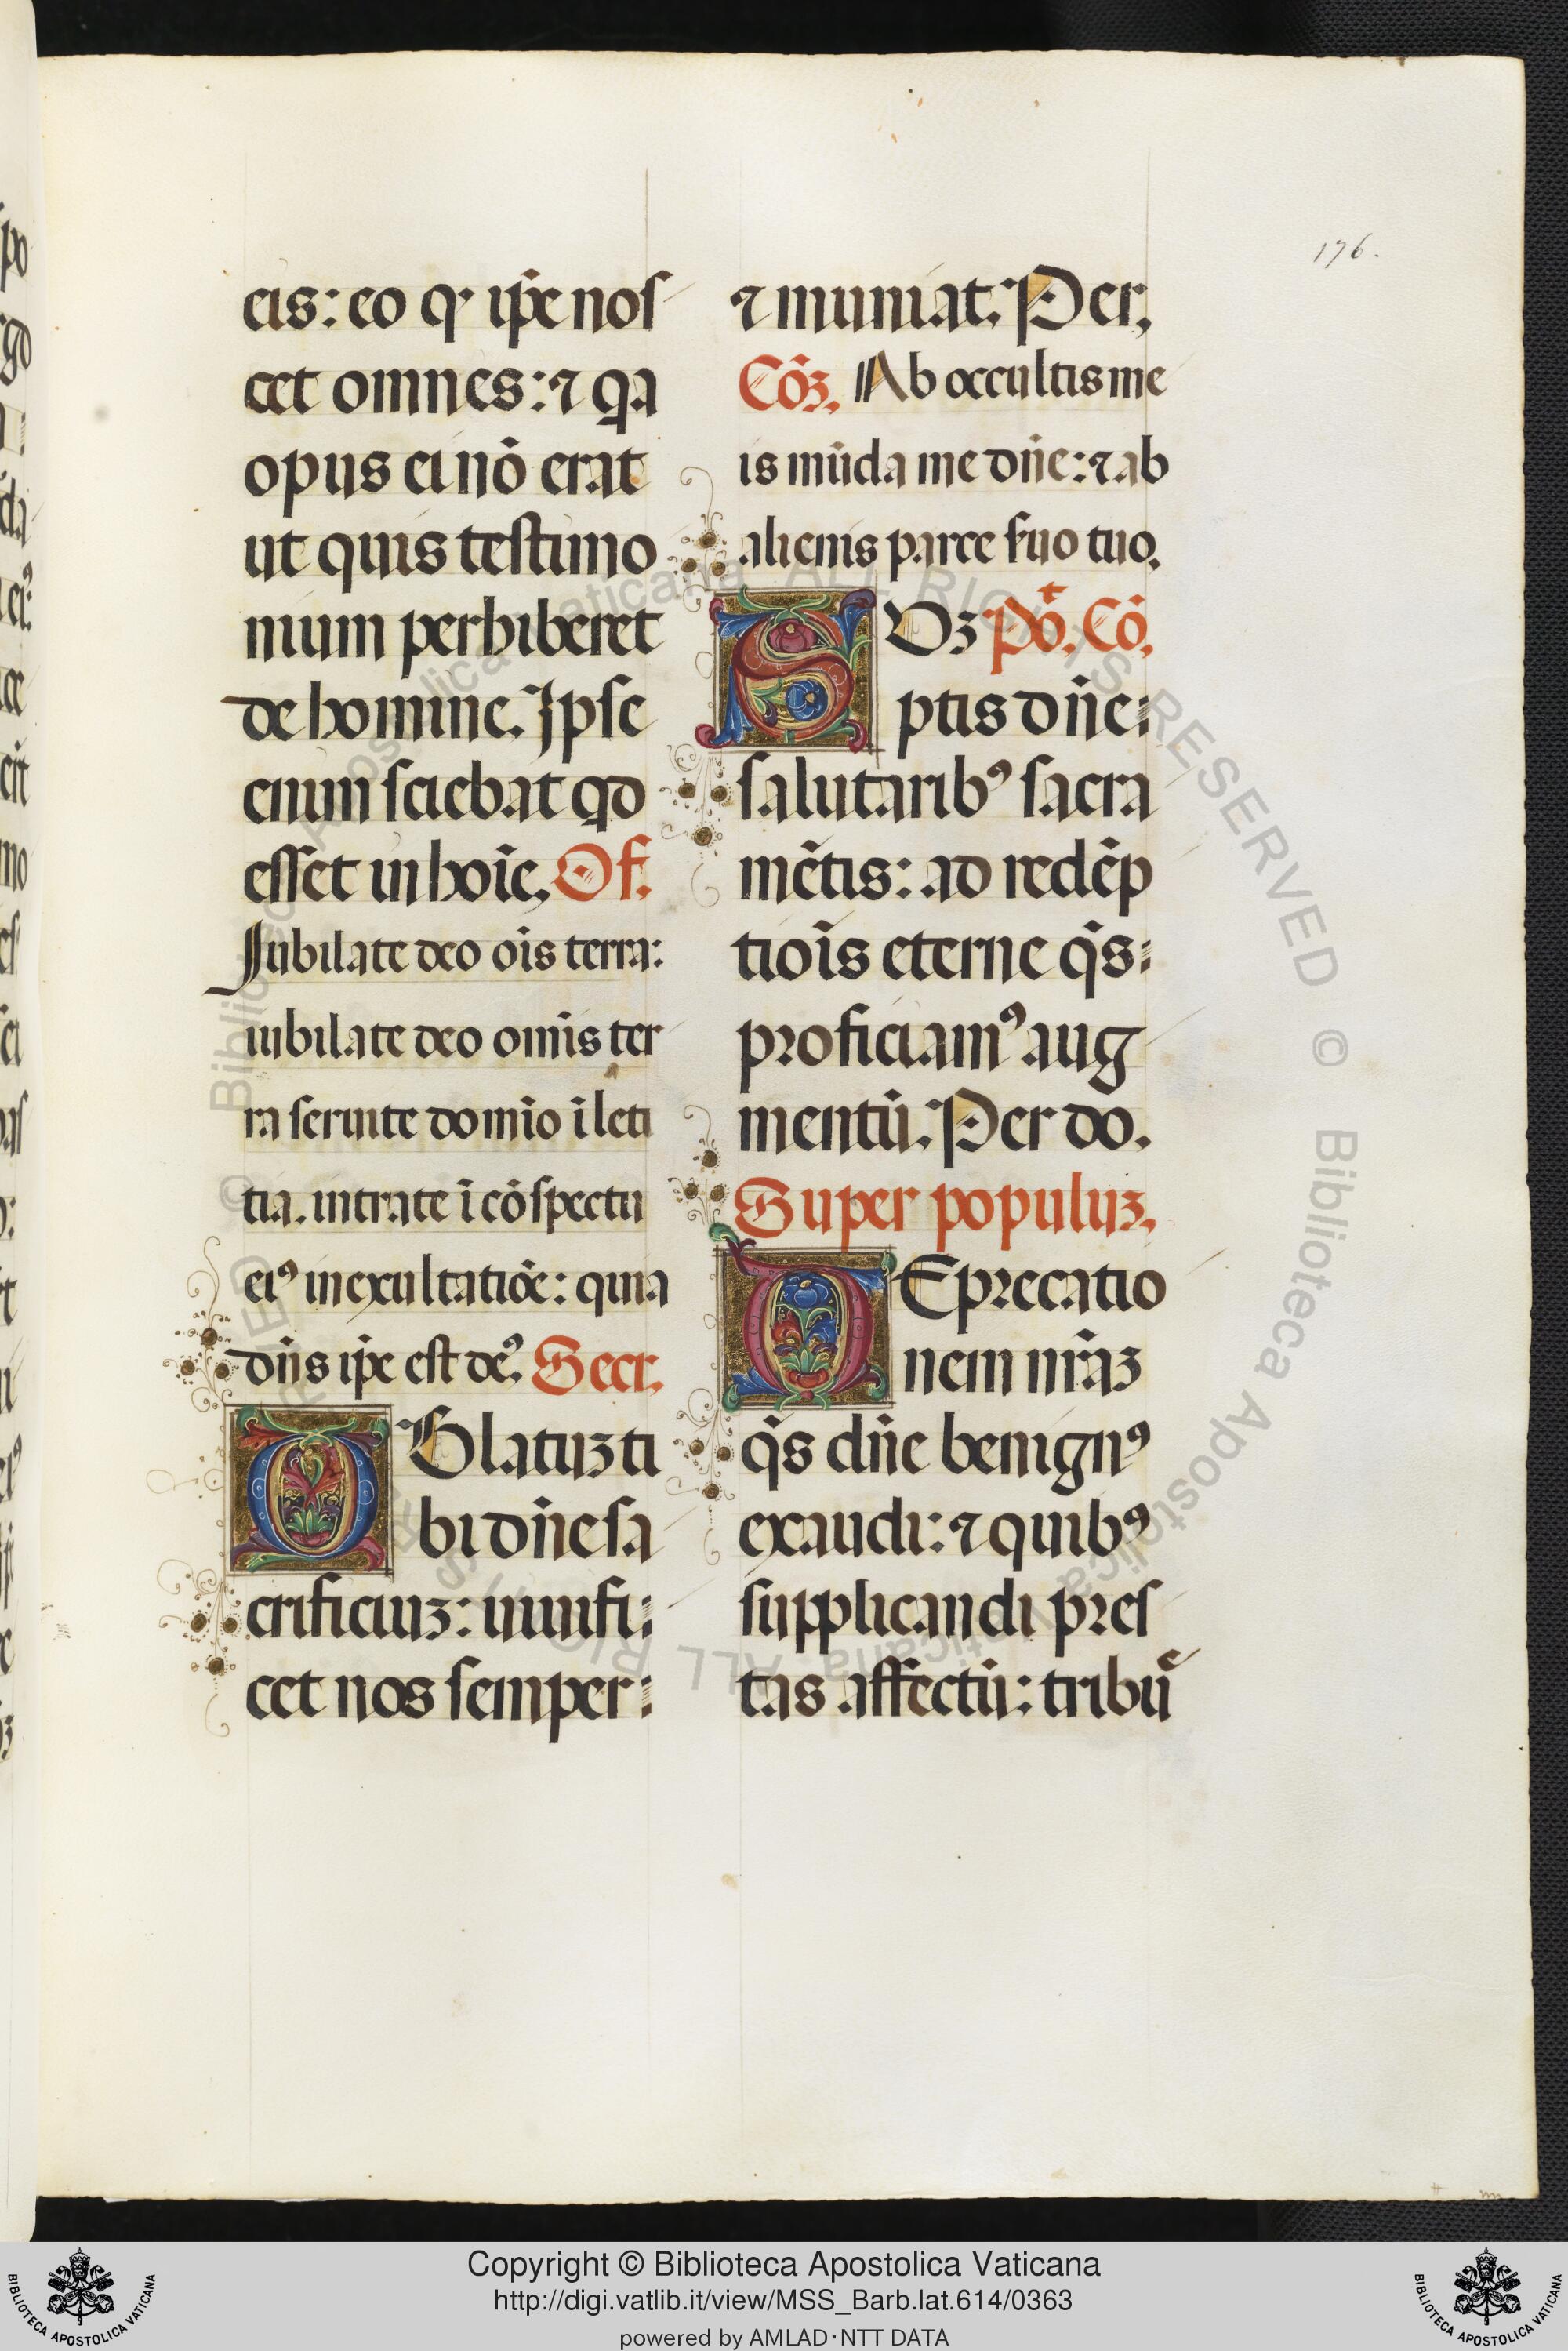 176.
eis: eo qꝙ ip̄e noſ
cet omnes: ⁊ qa
opus ei nō erat
ut quis teſtimo
nium perhiberet
de homine. Ipſe
enim ſciebat qd
eſſet in hoīe. Of.
Iubilate deo oīs terra:
iubilate deo omīs ter
ra ſeruite domīo ī leti
tia. intrate ī cōſpectu
eiꝰ in exultatiōe: quia
dn̄s ip̄e eſt deꝰ. Secr.
OBlatuꝫ ti
bi dn̄e ſa
crificiuꝫ: uiuifi
cet nos ſemper:
⁊ muniat. Per.
Cōꝫ. Ab occultis me
is mūda me dn̄e: ⁊ ab
alienis parce ſuo tuo.
SUꝫ Pō. Cō.
ptis dn̄e:
ſalutaribꝰ ſacra
mētis: ad redēp
tiōis eterne q̄s:
proficiamꝰ aug
mentū. Per do.
Super populuꝫ.
DEprecatio
nem nr̄aꝫ
q̄s dn̄e benignꝰ
exaudi: ⁊ quibꝰ
ſupplicandi preſ
tas affectū: tribue
Copyright © Biblioteca Apostolica Vaticana
http://digi.vatlib.it/view/MSS_Barb.lat.614/0363
powered by AMLAD·NTT DATA
BIBLIOTECA APOSTOLICA VATICANA
BIBLIOTECA APOSTOLICA VATICANA